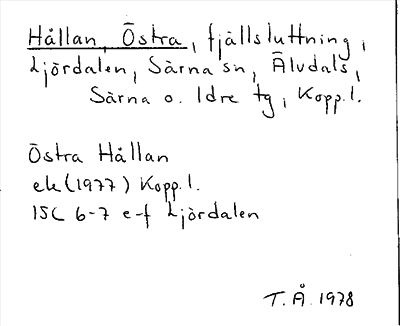 Hållan, Östra, fjällsluttning i
Ljördalen, Särna sn, Älvdals,
Särna o. Idre tg, Kopp.l.
Östra Hållan
ek (1977) Kopp.l.
15C 6-7 e-f Ljördalen
T.Å. 1978